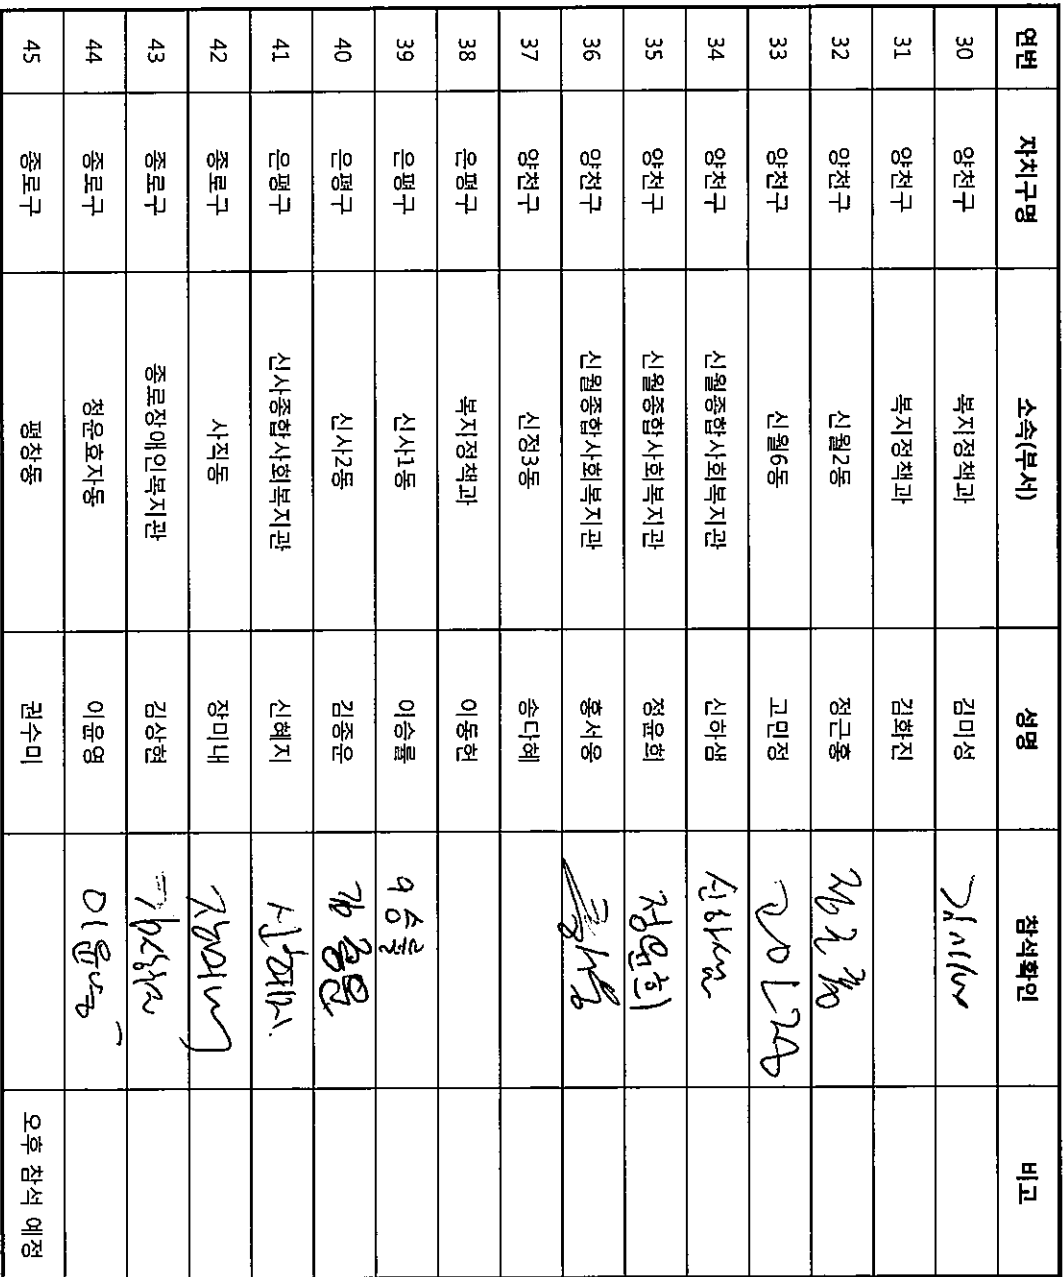 연번 자치구명 소속(부서) 성명 참석확인 비고
30 양천구 복지정책과 김미성
31 양천구 복지정책과 김화진
32 양천구 신월2동 정근홍 정근홍
33 양천구 신월6동 고민정 고민정
34 양천구 신월종합사회복지관 신하샘 신하샘
35 양천구 신월종합사회복지관 정윤희 정윤희
36 양천구 신월종합사회복지관 홍서용
37 양천구 신정3동 송다혜
38 은평구 복지정책과 이동헌
39 은평구 신사1동 이승률 이승률
40 은평구 신사2동 김종운 김종운
41 은평구 신사종합사회복지관 신혜지 신혜지
42 종로구 사직동 장미내 장미내
43 종로구 종로장애인복지관 김상현
44 종로구 청운효자동 이윤영 이윤영
45 종로구 평창동 권수미 오후 참석 예정